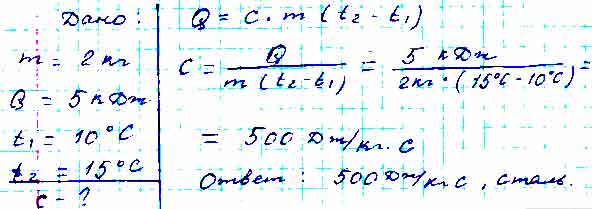 Дано:
m = 2 кг
Q = 5 кДж
t₁ = 10°C
t₂ = 15°C
c - ?
Q = c · m (t₂ - t₁)
c = Q / m (t₂ - t₁) = 5 кДж / 2кг · (15°C - 10°C) =
= 500 Дж/кг·C
Ответ: 500 Дж/кг C, сталь.